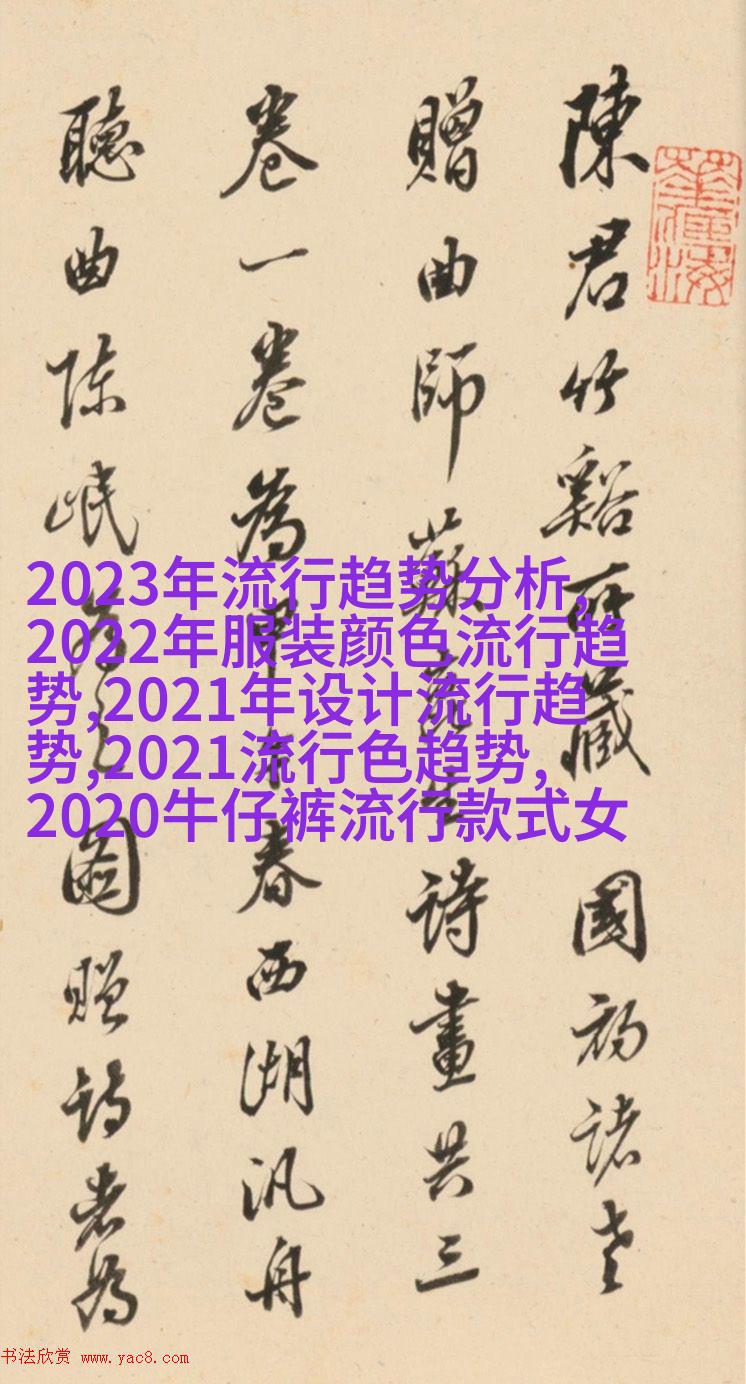 陳君竹谿所藏國初諸老
贈曲師蘇崑生詩畫共三
卷一卷為甲午春西湖汎舟
聽曲陳岷為之圖贈詩者為
2023年流行趋势分析,
2022年服装颜色流行趋
势,2021年设计流行趋
势,2021流行色趋势,
2020牛仔裤流行款式女
书法欣赏 www.yac8.com